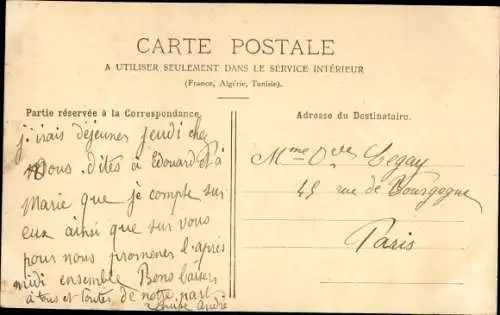 CARTE POSTALE
A UTILISER SEULEMENT DANS LE SERVICE INTÉRIEUR
(France, Algérie, Tunisie).
Partie réservée à la Correspondance.
j'irais déjeuner jeudi chez
vous. dites à Edouard et à
Marie que je compte sur
eux ainsi que sur vous
pour nous promener l'après
midi ensemble Bons baisers
à tous et toutes de notre part
André
Adresse du Destinataire.
Mme Vve Legay
45 rue de Bourgogne
Paris